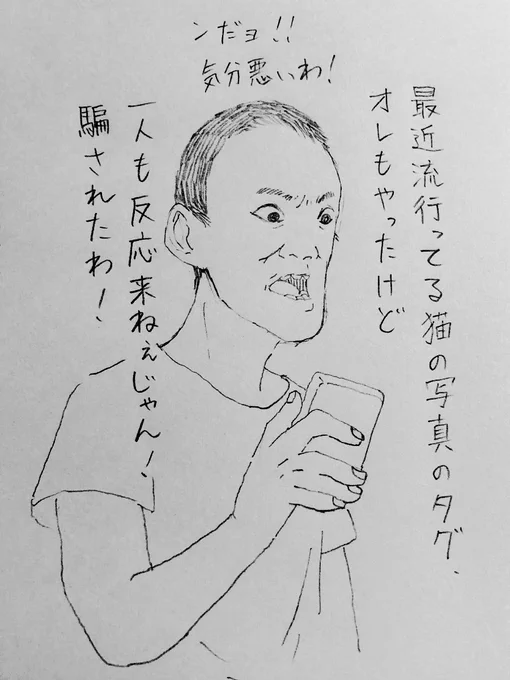 最近流行ってる猫の写真のタグ、
オレもやったけど
一人も反応来ねぇじゃん!
騙されたわ!
ンだョ!!
気分悪いわ!